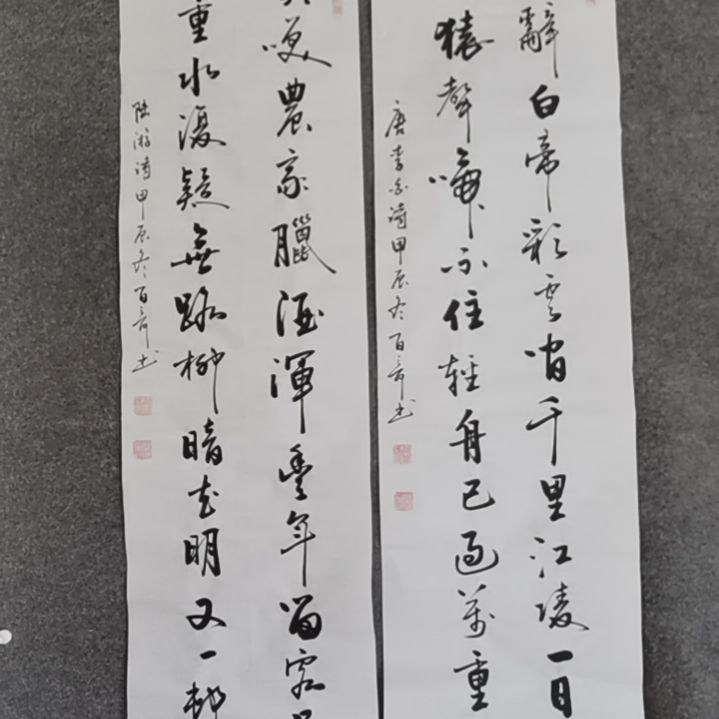 辭白帝彩雲間千里江陵一日
猿聲啼不住輕舟已過萬重
唐李白詩甲辰冬百奇书
笑農家臘酒渾豐年留客
重水複疑無路柳暗花明又一邨
陸游詩甲辰冬百奇书